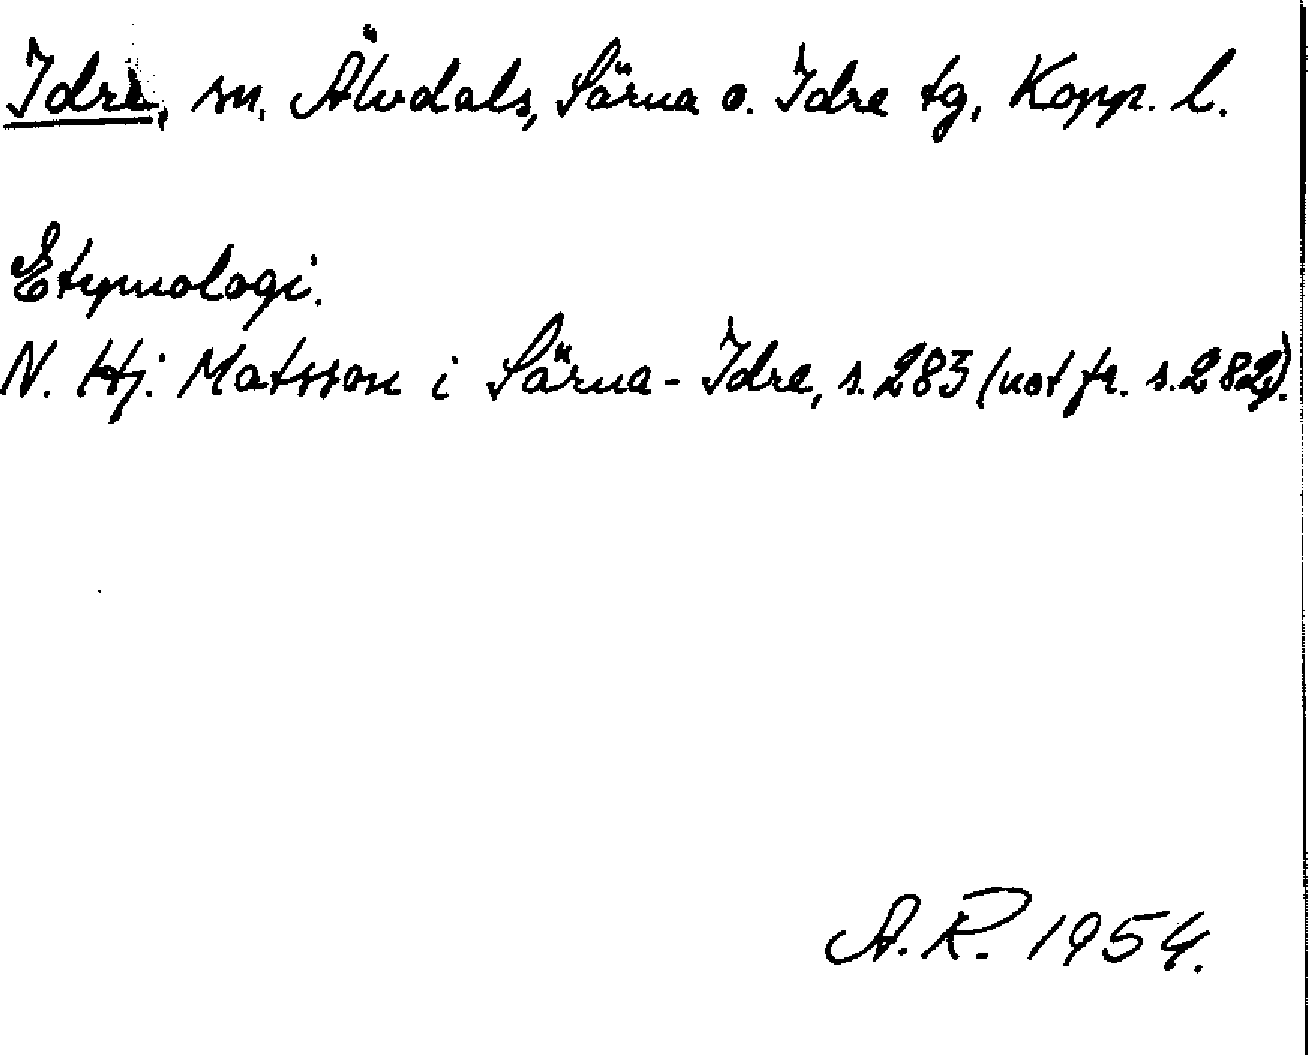 Idre, sn. Älvdals, Särna o. Idre tg, Kopp. l.
Etymologi.
N. Hj. Matsson i Särna-Idre, s. 283 (not fr. s. 282).
A.R. 1954.